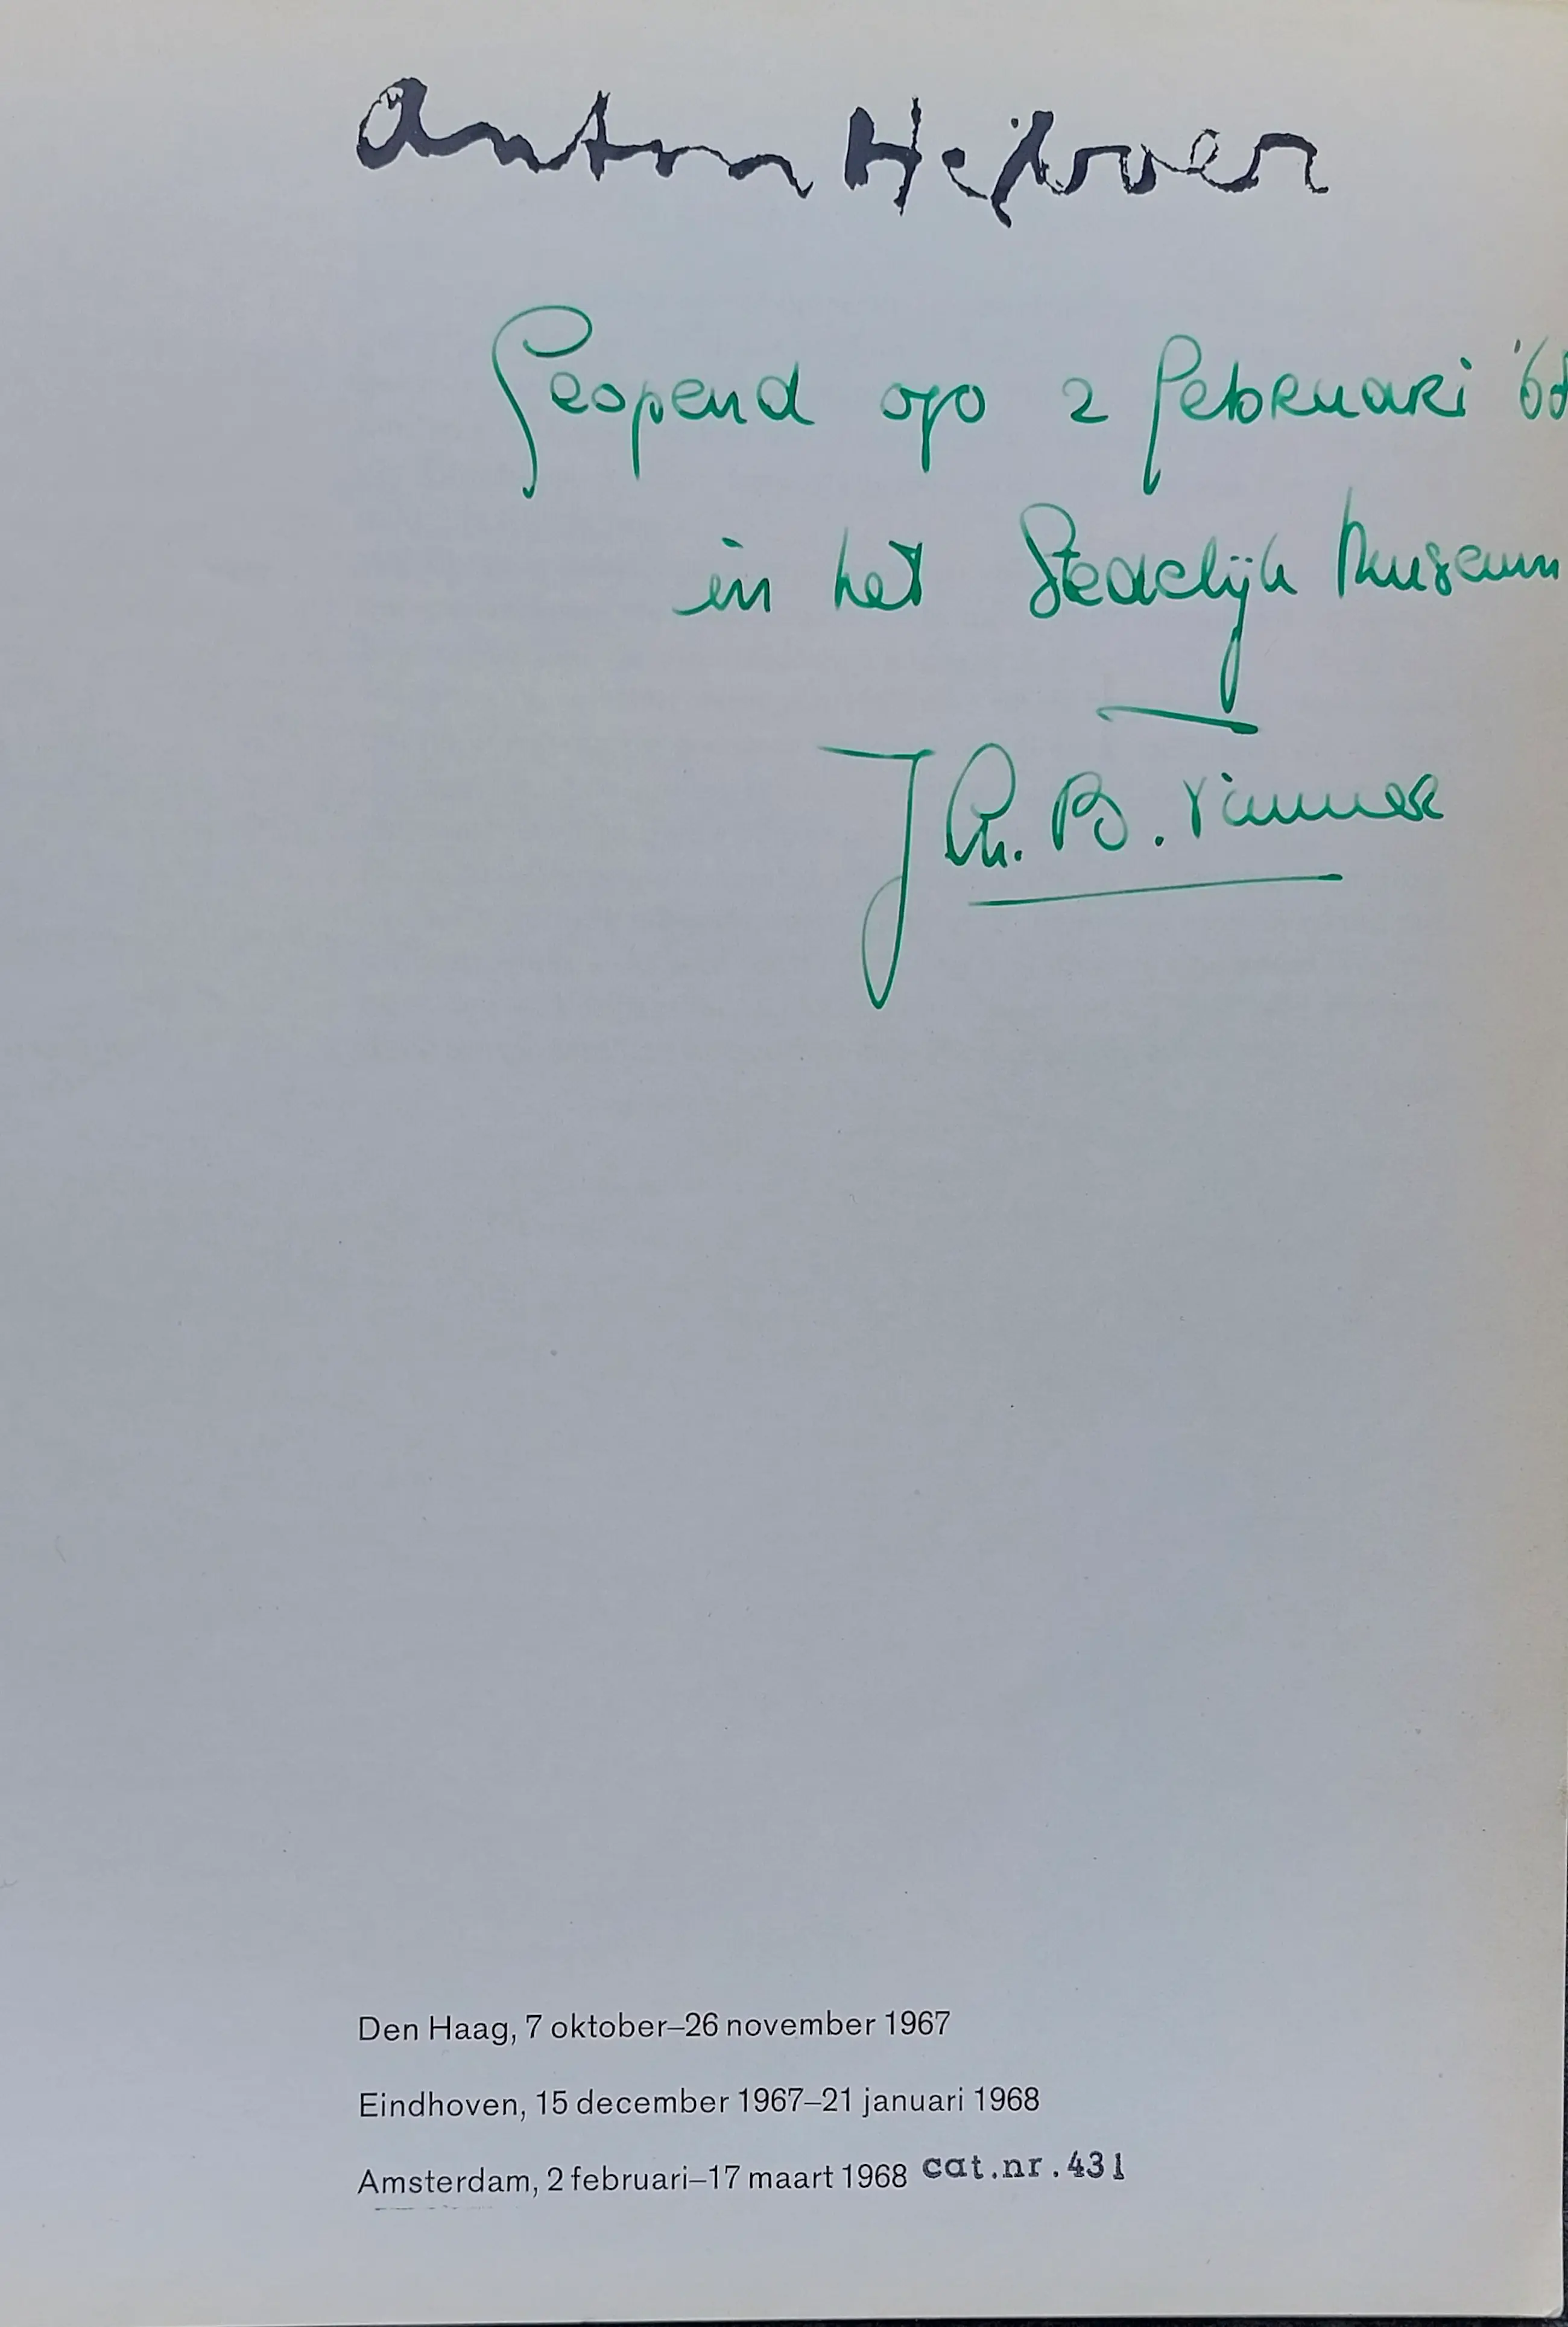 Anton Heijboer
Geopend op 2 februari '68
in het Stedelijk Museum
J Ch. B.
Den Haag, 7 oktober–26 november 1967
Eindhoven, 15 december 1967–21 januari 1968
Amsterdam, 2 februari–17 maart 1968 cat.nr.431